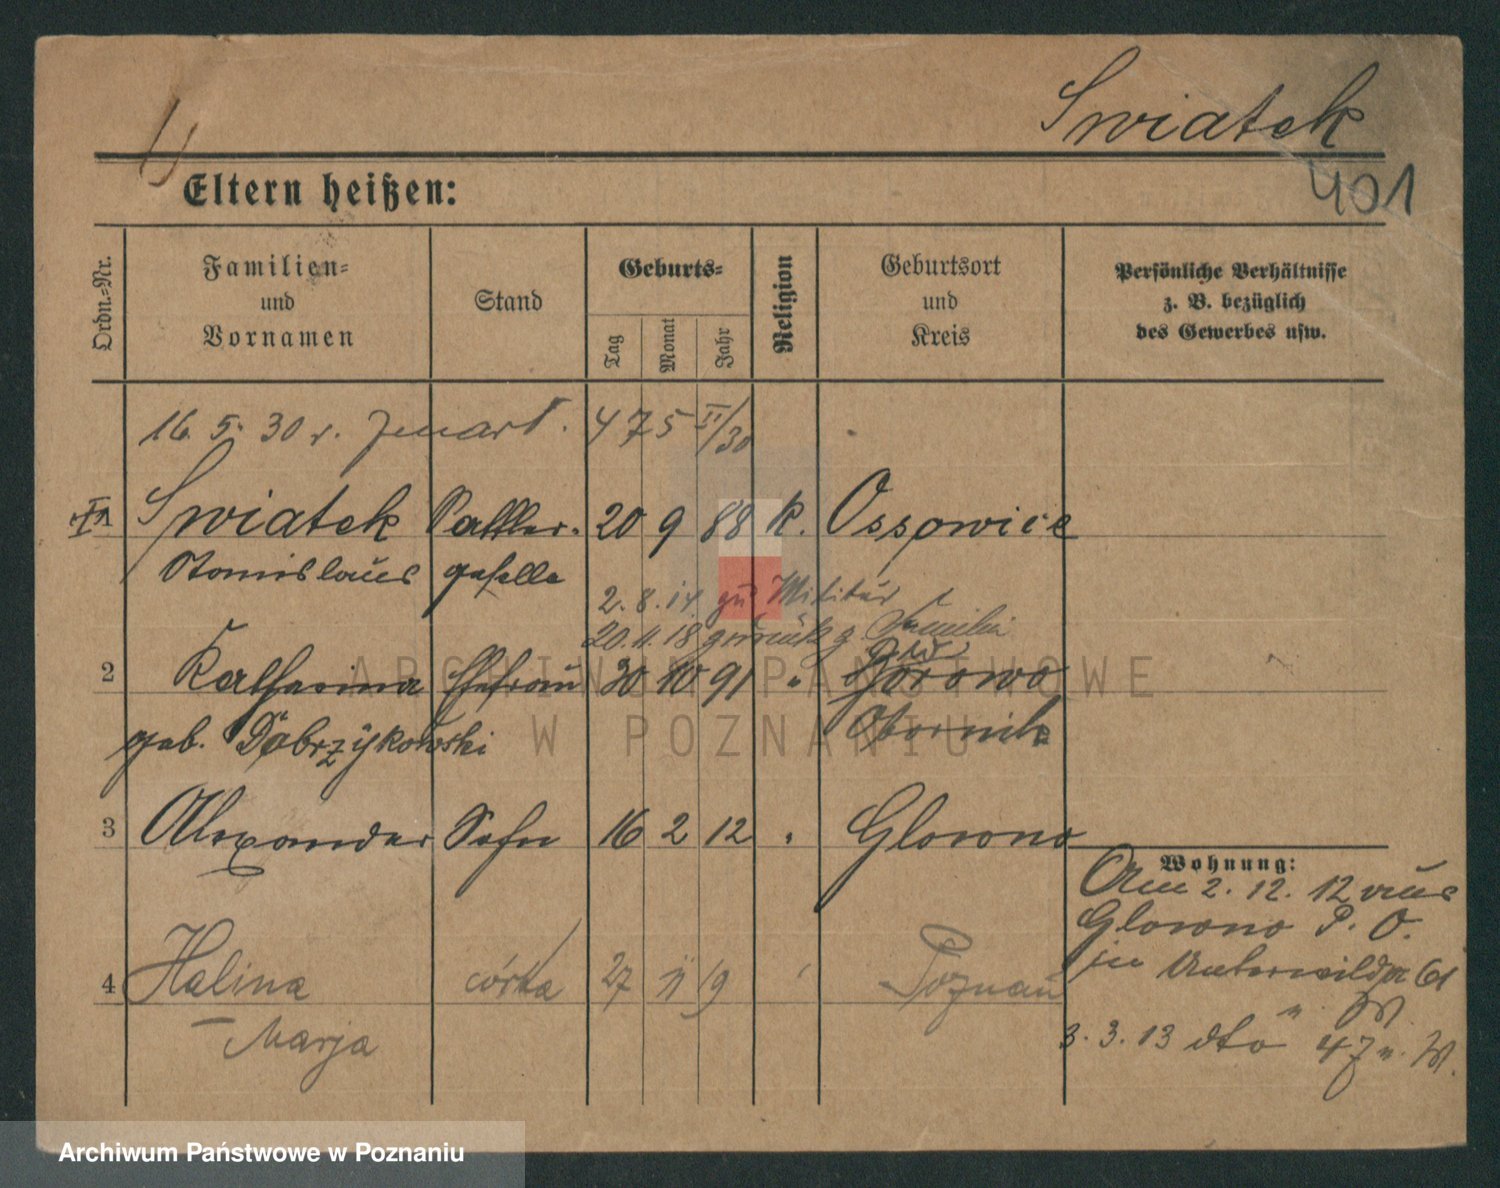 Swiatek
401
Eltern heißen:
Ordn.-Nr.
Familien-
und
Vornamen
Stand
Geburts-
Tag
Monat
Jahr
Religion
Geburtsort
und
Kreis
Persönliche Verhältnisse
z. B. bezüglich
des Gewerbes usw.
16. 5. 30 r. 475 II/30
Swiatek Sattler- 20 9 88 k. Ossowice
Stanislaus geselle
2. 8. 14 zu Militär
20. 11. 18 zurück z Familie
2 Katharina Ehefrau 30 10 91 " Gorowo
geb. Dobrzykowski Obornik
3 Alexander Sohn 16 2 12 " Glowno
Wohnung:
Am 2. 12. 12 aus
Glowno P. O.
in Unterwilda 61
" W
3. 3. 13 dto 47 n. W.
4 Halina córka 27 11 19 " Poznań
- Marja
ARCHIWUM PAŃSTWOWE
W POZNANIU
Archiwum Państwowe w Poznaniu